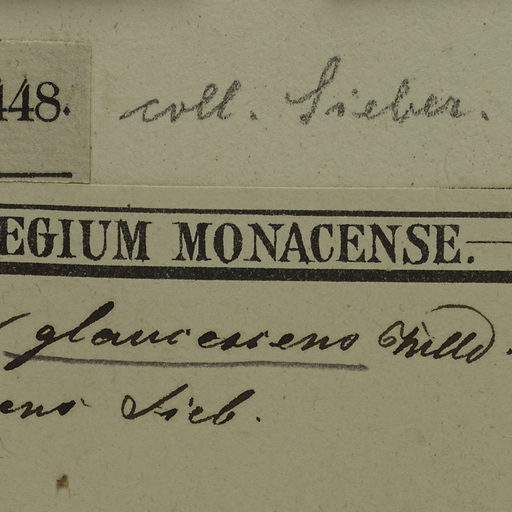 448. coll. Sieber.
EGIUM MONACENSE.
glaucescens Willd.
ens Sieb.